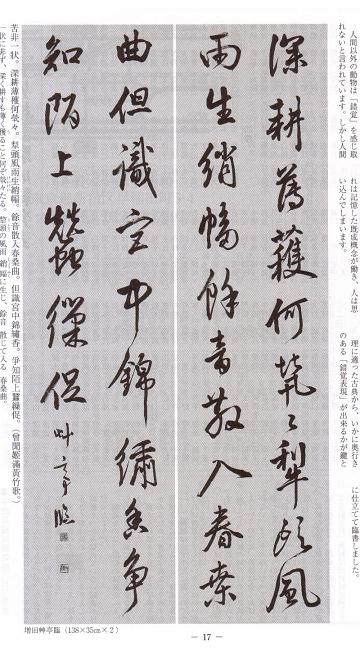 人間以外の動物は「錯覚」を感じ取
れないと言われています。しかし人間
れは記憶した既成概念が働き、人は思
い込んでしまいます。
理に適った古典から、いかに奥行き
のある「錯覚表現」が出来るかが鍵と
に仕立てて臨書しました。
深耕薄穫何煢々犂頭風
雨生綃幅餘音散入春桑
曲但識宮中錦繡香争
知陌上蠶繰促艸亭臨
苦非一状。深耕薄穫何煢々。犁頭風雨生綃幅。餘音散入春桑曲。但識宮中錦繡香。爭知陌上蠶繰促。（曾聞姫滿黄竹歌。）
一状に非ず、深く耕すも薄く穫ること何ぞ煢々たる。犂頭の風雨 綃幅に生じ、餘音 散じて入る 春桑曲。
増田艸亭臨（138×35㎝×2）
— 17 —